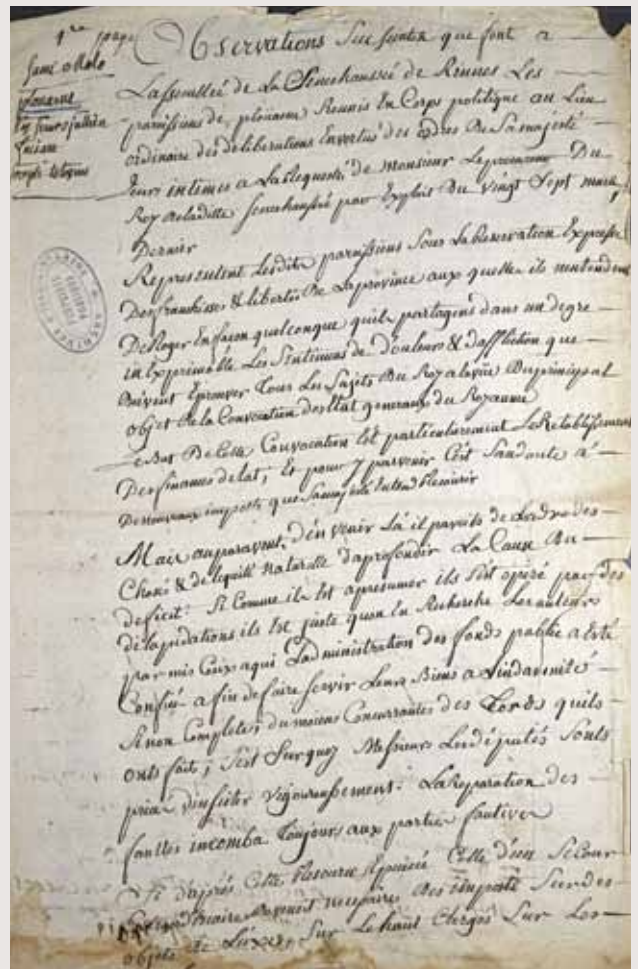 1re page
Observations Succintes que font a
Lassemblée de La Senechaussée de Rennes Les
paroissiens de plouasne Reunis En Corps politique au Lieu
ordinaire des deliberations Envertu des ordres De Samajesté
Leurs intimes a La Requeste de monsieur Le procureur Du
Roy de laditte Senechaussée par Exploit Du vingt Sept mars
Dernier
Representent Lesdits paroissiens Sous La Reservation Expresse
Des franchises & libertés De La province aux quelles ils nentendent
De Roger En facon quelconque quils partagent dans un degre
in Exprimable Les Sentimens de douleurs & daffliction que
Doivent Eprouver Tous Les Sujets Du Roy a la vüe Du principal
objet de la Convocation des Etat generaux du Royaume
Le But De Cette Convocation Est particulierement Le Retablissement
Des finances de lat; Et pour y parvenir Cest Sandoute a
De nouveaux impots que Samajesté Entend Recourir
Mais auparavent, d'en venir La il paroits de Lordre des
Choses & de lequité Naturelle daprofondir La Cause Du
deficit: Si Comme il Est apresumer ils Sest opéré par des
dilapidations ils Est juste quon En Recherche Les auteurs
par mis Ceux a qui Ladministration des fonds public a Eté
Confié a fin de faire Servir Leurs Biens a Lindamnité
Sinon Complete; du moins Concurrante des Tords quils
onts faits; Sest Surquoy Messieurs Les députés Sonts
priés dinsister vigoureusement: La Reparation des
fauttes incomba Toujours aux parties fautives
Si d'aprés Cette Resource Epuisée Celle d'un Secour
Extraordinaire Devenoit necessaire Des impots Surdes
objets de Luxes, Sur Le haut Clergés Sur Les
plouasne